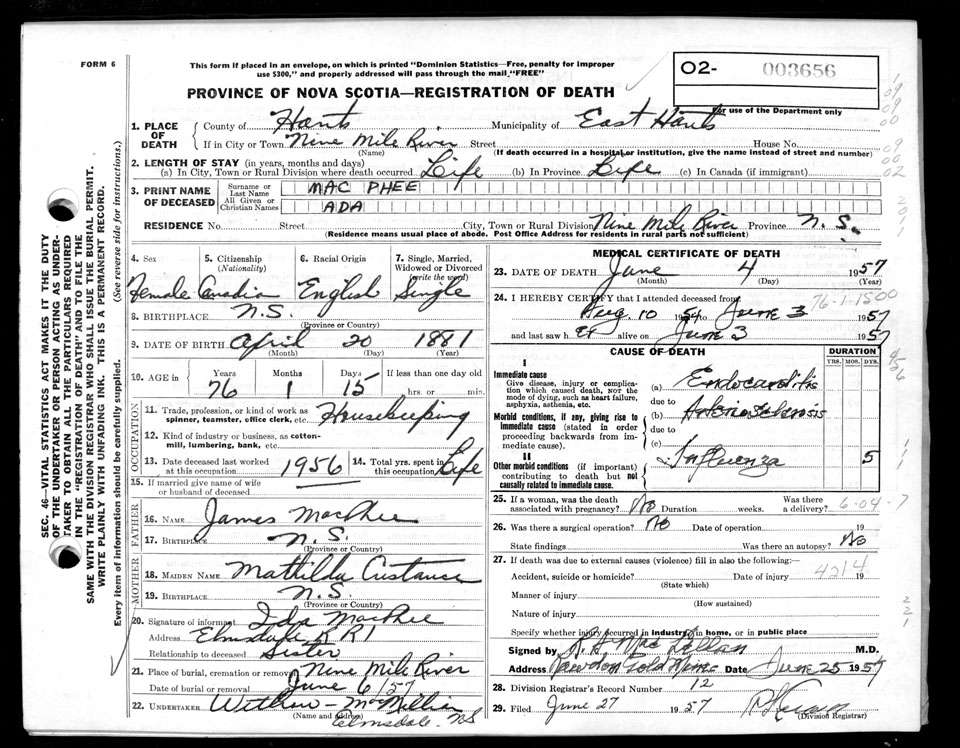 FORM 6
This form if placed in an envelope, on which is printed "Dominion Statistics—Free, penalty for improper
use $300," and properly addressed will pass through the mail "FREE"
O2- 003656
For use of the Department only
PROVINCE OF NOVA SCOTIA—REGISTRATION OF DEATH
SEC. 46—VITAL STATISTICS ACT MAKES IT THE DUTY
OF THE UNDERTAKER OR PERSON ACTING AS UNDER-
TAKER TO OBTAIN ALL THE PARTICULARS REQUIRED
IN THE "REGISTRATION OF DEATH" AND TO FILE THE
SAME WITH THE DIVISION REGISTRAR WHO SHALL ISSUE THE BURIAL PERMIT.
WRITE PLAINLY WITH UNFADING INK. THIS IS A PERMANENT RECORD.
Every item of information should be carefully supplied. (See reverse side for instructions.)
1. PLACE OF DEATH
County of Hants Municipality of East Hants
If in City or Town Nine Mile River Street House No.
(Name) (If death occurred in a hospital or institution, give the name instead of street and number)
2. LENGTH OF STAY (in years, months and days)
(a) In City, Town or Rural Division where death occurred Life (b) In Province Life (c) In Canada (if immigrant)
3. PRINT NAME OF DECEASED
Surname or Last Name MAC PHEE
All Given or Christian Names ADA
RESIDENCE No. Street City, Town or Rural Division Nine Mile River Province N.S.
(Residence means usual place of abode. Post Office Address for residents in rural parts not sufficient)
4. Sex Female
5. Citizenship (Nationality) Canadian
6. Racial Origin English
7. Single, Married, Widowed or Divorced (write the word) Single
8. BIRTHPLACE N.S.
(Province or Country)
9. DATE OF BIRTH April 20 1881
(Month) (Day) (Year)
10. AGE in Years Months Days If less than one day old
76 1 15 hrs. or min.
OCCUPATION
11. Trade, profession, or kind of work as spinner, teamster, office clerk, etc. Housekeeping
12. Kind of industry or business, as cotton-mill, lumbering, bank, etc.
13. Date deceased last worked at this occupation 1956
14. Total yrs. spent in this occupation Life
15. If married give name of wife or husband of deceased
FATHER
16. NAME James MacPhee
17. BIRTHPLACE N.S.
(Province or Country)
MOTHER
18. MAIDEN NAME Mathilda Custance
19. BIRTHPLACE N.S.
(Province or Country)
20. Signature of informant Ida MacPhee
Address Elmsdale RR1
Relationship to deceased Sister
21. Place of burial, cremation or removal Nine Mile River
Date of burial or removal June 6/57
22. UNDERTAKER Withrow - MacMillan
(Name and address) Elmsdale NS
MEDICAL CERTIFICATE OF DEATH
23. DATE OF DEATH June 4 1957
(Month) (Day) (Year)
76-1-1500
24. I HEREBY CERTIFY that I attended deceased from
Aug. 10 1954 to June 3 1957
and last saw her alive on June 3 1957
CAUSE OF DEATH DURATION
YRS. MOS. DYS.
I
Immediate cause
Give disease, injury or complication which caused death, not the mode of dying, such as heart failure, asphyxia, asthenia, etc.
(a) Endocarditis
due to
Morbid conditions, if any, giving rise to immediate cause (stated in order proceeding backwards from immediate cause).
(b) Arteriosclerosis
due to
(c)
II
Other morbid conditions (if important) contributing to death but not causally related to immediate cause.
Influenza 5
25. If a woman, was the death associated with pregnancy? No Duration weeks. Was there a delivery?
6-04-7
26. Was there a surgical operation? No Date of operation 19
State findings Was there an autopsy? No
27. If death was due to external causes (violence) fill in also the following:—
Accident, suicide or homicide? Date of injury 19
4214
(State which)
Manner of injury
(How sustained)
Nature of injury
Specify whether injury occurred in industry, in home, or in public place
Signed by M.D.
Address Rawdon Gold Mines Date June 25 1957
28. Division Registrar's Record Number 12
29. Filed June 27 1957
(Division Registrar)